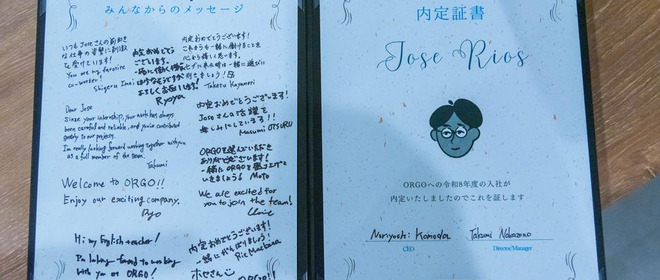 みんなからのメッセージ
いつもJoseさんの前向き
な仕事の姿勢に刺激
を受けています!
You are my favorite
co-worker!
Shigeru Imai
内定おめでとう
ございます。
一緒に働く仲間
よろしくお願いします!
Ryoya
内定おめでとうございます!
これからも一緒に働けることを
心から嬉しく思います。
Takeru Kayamori
Dear Jose
Since your internship, your work has always
been careful and reliable, and you've contributed
greatly to our projects.
I'm really looking forward to working together with you
as a full member of the team.
Takumi
内定おめでとうございます!
Joseさんの活躍を
楽しみにしています!!
Masumi OTSURU
ORGOを選んでいただき
ありがとうございます!
一緒にORGOを盛り上げて
いきましょう! Moto
Welcome to ORGO!!
Enjoy our exciting company.
Ryo
We are excited for
you to join the team!
Claire
Hi my English teacher!
I'm looking forward to working
with you at ORGO!
内定おめでとうございます!
一緒にがんばりましょう!
Rie Maehara
ホセさん
ORGO!!
内定証書
Jose Rios
ORGOへの令和8年度の入社が
内定いたしましたのでこれを証します
Noriyuki Kamada
CEO
Takumi Nakazono
Director/Manager